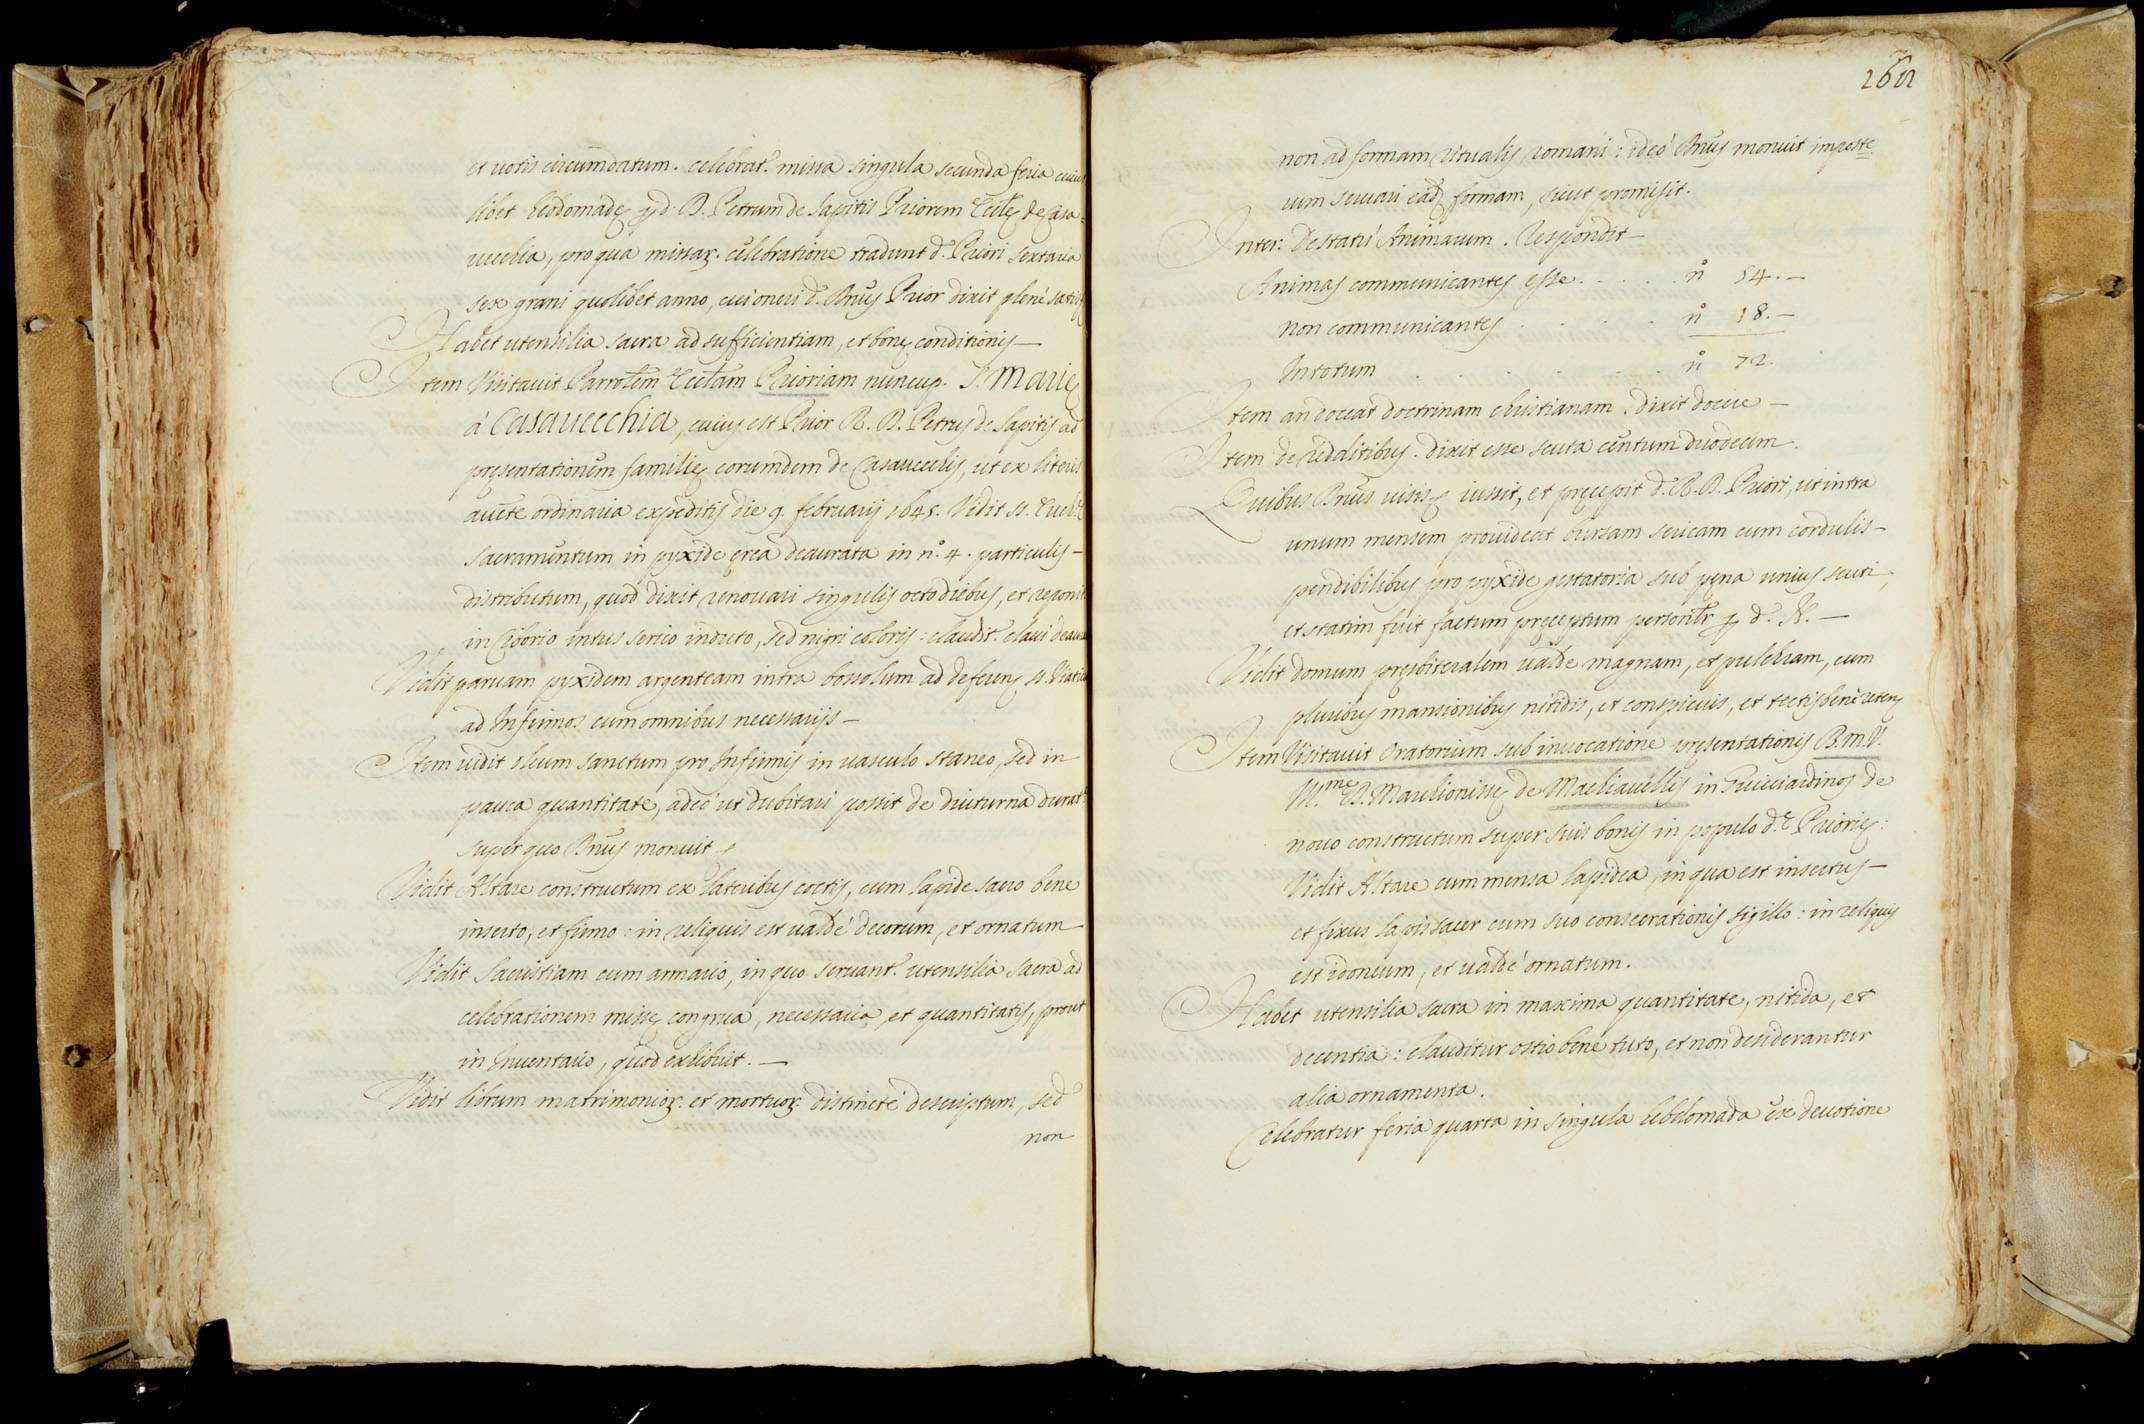 et votis circumdatum. celebrat.r missa singula secunda feria cuius
libet hebdomadę p d. D. Petrum de Sapitis Priorem Eccl.ę de Casa=
uecchia, pro qua missar. celebratione tradunt d. Priori sextaria
sex grani quolibet anno, cui oneri d. Rnus Prior dixit plenè satisf
Habet utensilia sacra ad sufficientiam, et bonę conditionis—
Item Visitauit Parro.lem Eccl.am Prioriam nuncup. S. Marię
à Casauecchia, cuius est Prior R. D. Petrus de Sapitis ad
pręsentationem familię eorumdem de Casaueccis, ut ex literis
auc.te ordinaria expeditis die 9. februarij 1645. Vidit SS. Euch.ę
sacramentum in pyxide ęrea deaurata in n.o 4. particulis—
distributum, quod dixit renouari singulis octo diebus, et reponit.
in Ciborio intus serico induto, sed nigri coloris: claudit.r claui deaura
Vidit paruam pyxidem argenteam intra bossolum ad deferen. SS. Viaticũ
ad Infirmos cum omnibus necessarijs—
Item uidit oleum sanctum pro Infirmis in uasculo staneo, sed in
pauca quantitate, adeo' ut dubitari possit de diuturna durat.e
super quo Rnus monuit
Vidit Altare constructum ex lateribus coctis, cum lapide sacro bene
inserto, et firmo: in reliquis est ualdè decorum, et ornatum
Vidit Sacristiam cum armario, in quo seruant.r utensilia sacra ad
celebrationem missę congrua, necessaria, et quantitatis, prout
in Inuentario, quod exhibuit.—
Vidit librum matrimonior. et mortuor. distinctè descriptum, sed
non
262
non ad formam ritualis romani: ideò Rnus monuit imposte=
rum seruari ead. formam, sicut promisit.
Inter: de statu Animarum. Respondit—
Animas communicantes esse . . . . . n.o 54.—
non communicantes . . . . . n.o 18.—
In totum . . . . . . . n.o 72.
Item an doceat doctrinam christianam. dixit docere—
Item de redditibus. dixit esse scuta centum duodecim.
Quibus Rnus uisis iussit, et pręcepit d. R. D. Priori, ut intra
unum mensem prouideat bursam sericam cum cordulis—
pendibilibus pro pyxide gestatoria sub pęna unius scuti,
et statim fuit factum pręceptum person.lr p d. N.—
Vidit domum pręsbiteralem ualde magnam, et pulchram, cum
pluribus mansionibus nitidis, et conspicuis, et tectis bene reten.
Item Visitauit Oratorium sub inuocatione pręsentationis B.M.V.
M.me D. Maulionissę de Macliauellis in Guicciardinos de
nouo constructum super suis bonis in populo d.ę Priorię:
Vidit Altare cum mensa lapidea, in qua est insertus—
et fixus lapis sacer cum suo consecrationis sigillo: in reliquis
est idoneum, et ualdè ornatum.
Habet utensilia sacra in maxima quantitate, nitida, et
decentia: clauditur ostio bene tuto, et non desiderantur
alia ornamenta.
Celebratur feria quarta in singula hebdomada ex deuotione